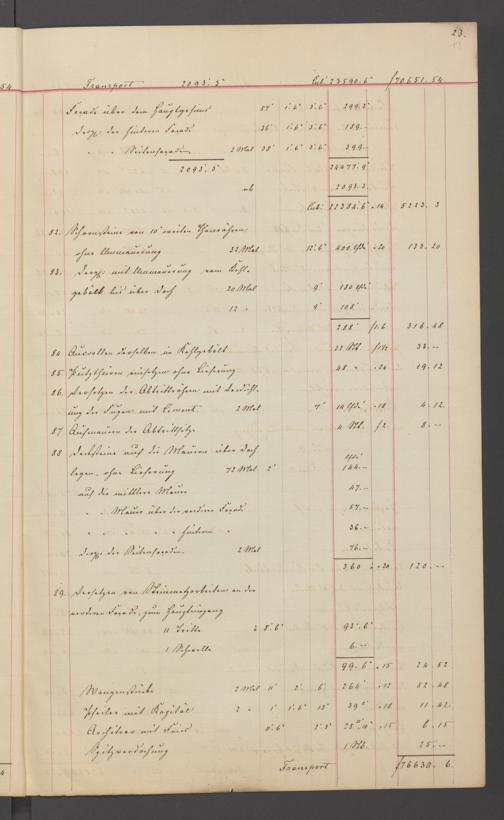 23.
Transport 2093.3 Cub' 23590.6 f 70651.54.
Façade über dem Hauptgesims 57' 1.6 3.6 299.3
Desgl. der hinteren Façade 36' 1.6 3.6 189.–
" " Seitenfaçaden 2 Mal 38' 1.6 3.6 399.–
2093.3 24477.9
ab 2093.3
Cub: 22384.6 "14 5223.3
82. Schornsteine von 10" weiten Thonröhren
ohne Ummauerung 32 Mal 12'.6 400 lfd' "20 133.20
83. Desgl. mit Ummauerung vom Kehl-
gebälk bis über Dach 20 Mal 9' 180 lfd'
12 " 9' 108'
288' f 1.6 316.48
84 Ausrollen derselben im Kehlgebälk 22 Stk. 33.–
85 Putzthüren einsetzen ohne Lieferung 48 " "24 19.12
86. Versetzen der Abtrittröhren mit Verdicht-
ung der Fugen mit Cement 2 Mal 7' 14 lfd' "18 4.12
87 Aufmauern der Abtrittsitze 4 Stk. f 2. 8.–
88 Decksteine auf die Mauern über Dach
legen, ohne Lieferung 72 Mal 2' lfd' 144.–
auf die mittlere Mauer 47.–
" " Mauer über der vorderen Façade 57.–
" " " " " hinteren " 36.–
Desgl. der Seitenfaçaden 2 Mal 76.–
360 à "20 120.–
89. Versetzen von Steinmetzarbeiten an der
vorderen Façade, zum Haupteingang
11 Tritte à 8'.6 93'.6
1 Schwelle 6.–
99.6 "15 24.52
Wangenstücke 2 Mal 11' 2' 6' 264' "12 52.48
Pfeiler mit Kapitäl 2 " 1' 1'.6 13' 39' "18 11.42
Architrav mit Fries "15 6.15
Spitzverdachung 1 Stk. 25.–
Transport f 76630.6.